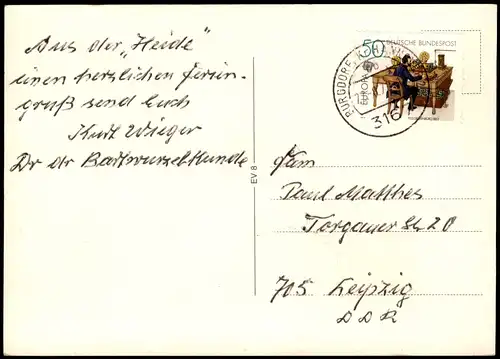 Aus der „Heide"
einen herzlichen Ferien-
gruß send Euch
Kurt Wieger
Dr dr
Fam
Paul Matthes
Torgauer Str 20
705 Leipzig
DDR
EV 8
50
DEUTSCHE BUNDESPOST
EUROPA
BURGDORF, HANN
316